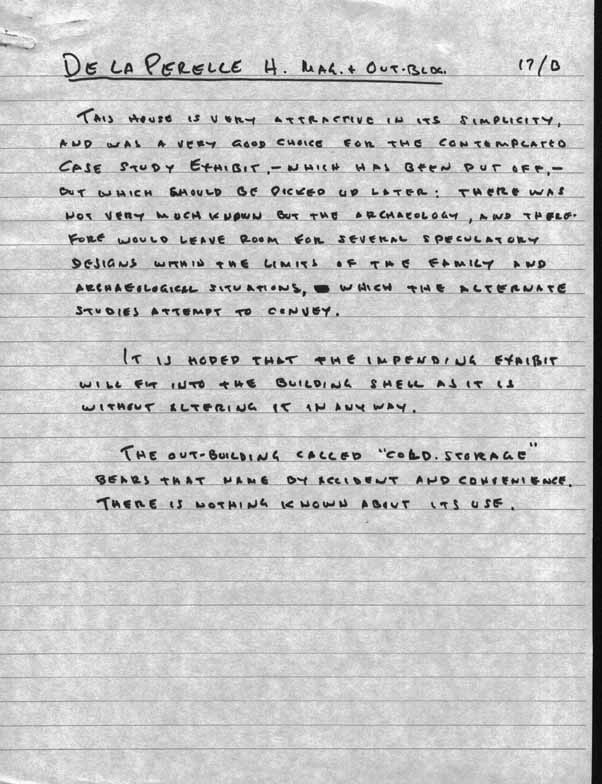 DE LA PERELLE H. MAG. + OUT-BLDG. 17/B
THIS HOUSE IS VERY ATTRACTIVE IN ITS SIMPLICITY,
AND WAS A VERY GOOD CHOICE FOR THE CONTEMPLATED
CASE STUDY EXHIBIT, - WHICH HAS BEEN PUT OFF, -
BUT WHICH SHOULD BE PICKED UP LATER: THERE WAS
NOT VERY MUCH KNOWN BUT THE ARCHAEOLOGY, AND THERE-
FORE WOULD LEAVE ROOM FOR SEVERAL SPECULATORY
DESIGNS WITHIN THE LIMITS OF THE FAMILY AND
ARCHAEOLOGICAL SITUATIONS, WHICH THE ALTERNATE
STUDIES ATTEMPT TO CONVEY.
IT IS HOPED THAT THE IMPENDING EXHIBIT
WILL FIT INTO THE BUILDING SHELL AS IT IS
WITHOUT ALTERING IT IN ANY WAY.
THE OUT-BUILDING CALLED "COLD.STORAGE"
BEARS THAT NAME BY ACCIDENT AND CONVENIENCE.
THERE IS NOTHING KNOWN ABOUT ITS USE.